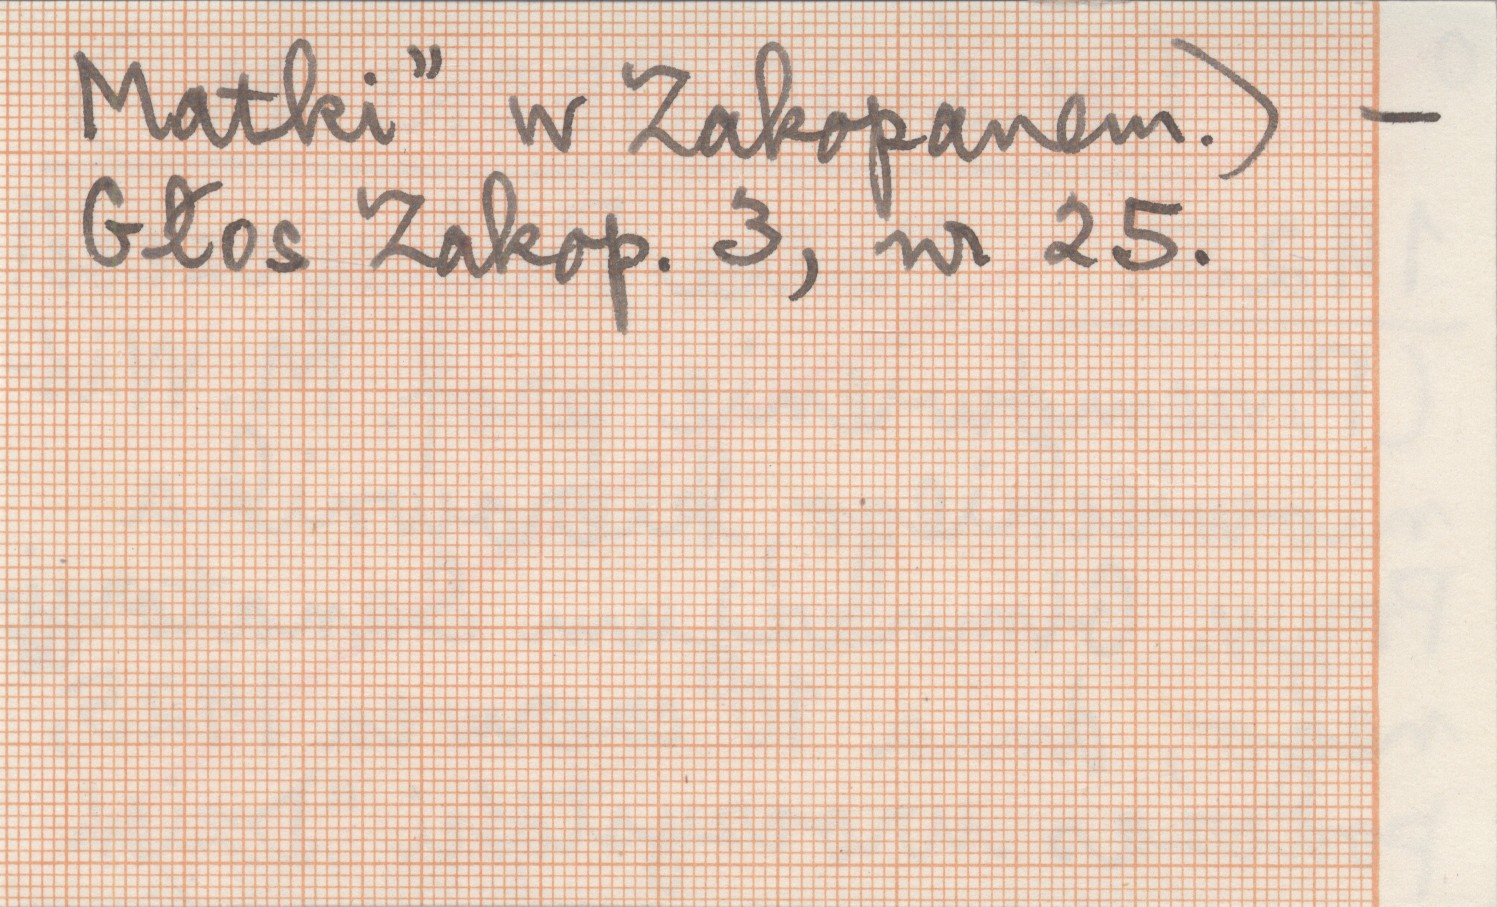 Matki" w Zakopanem.) —
Głos Zakop. 3, nr 25.